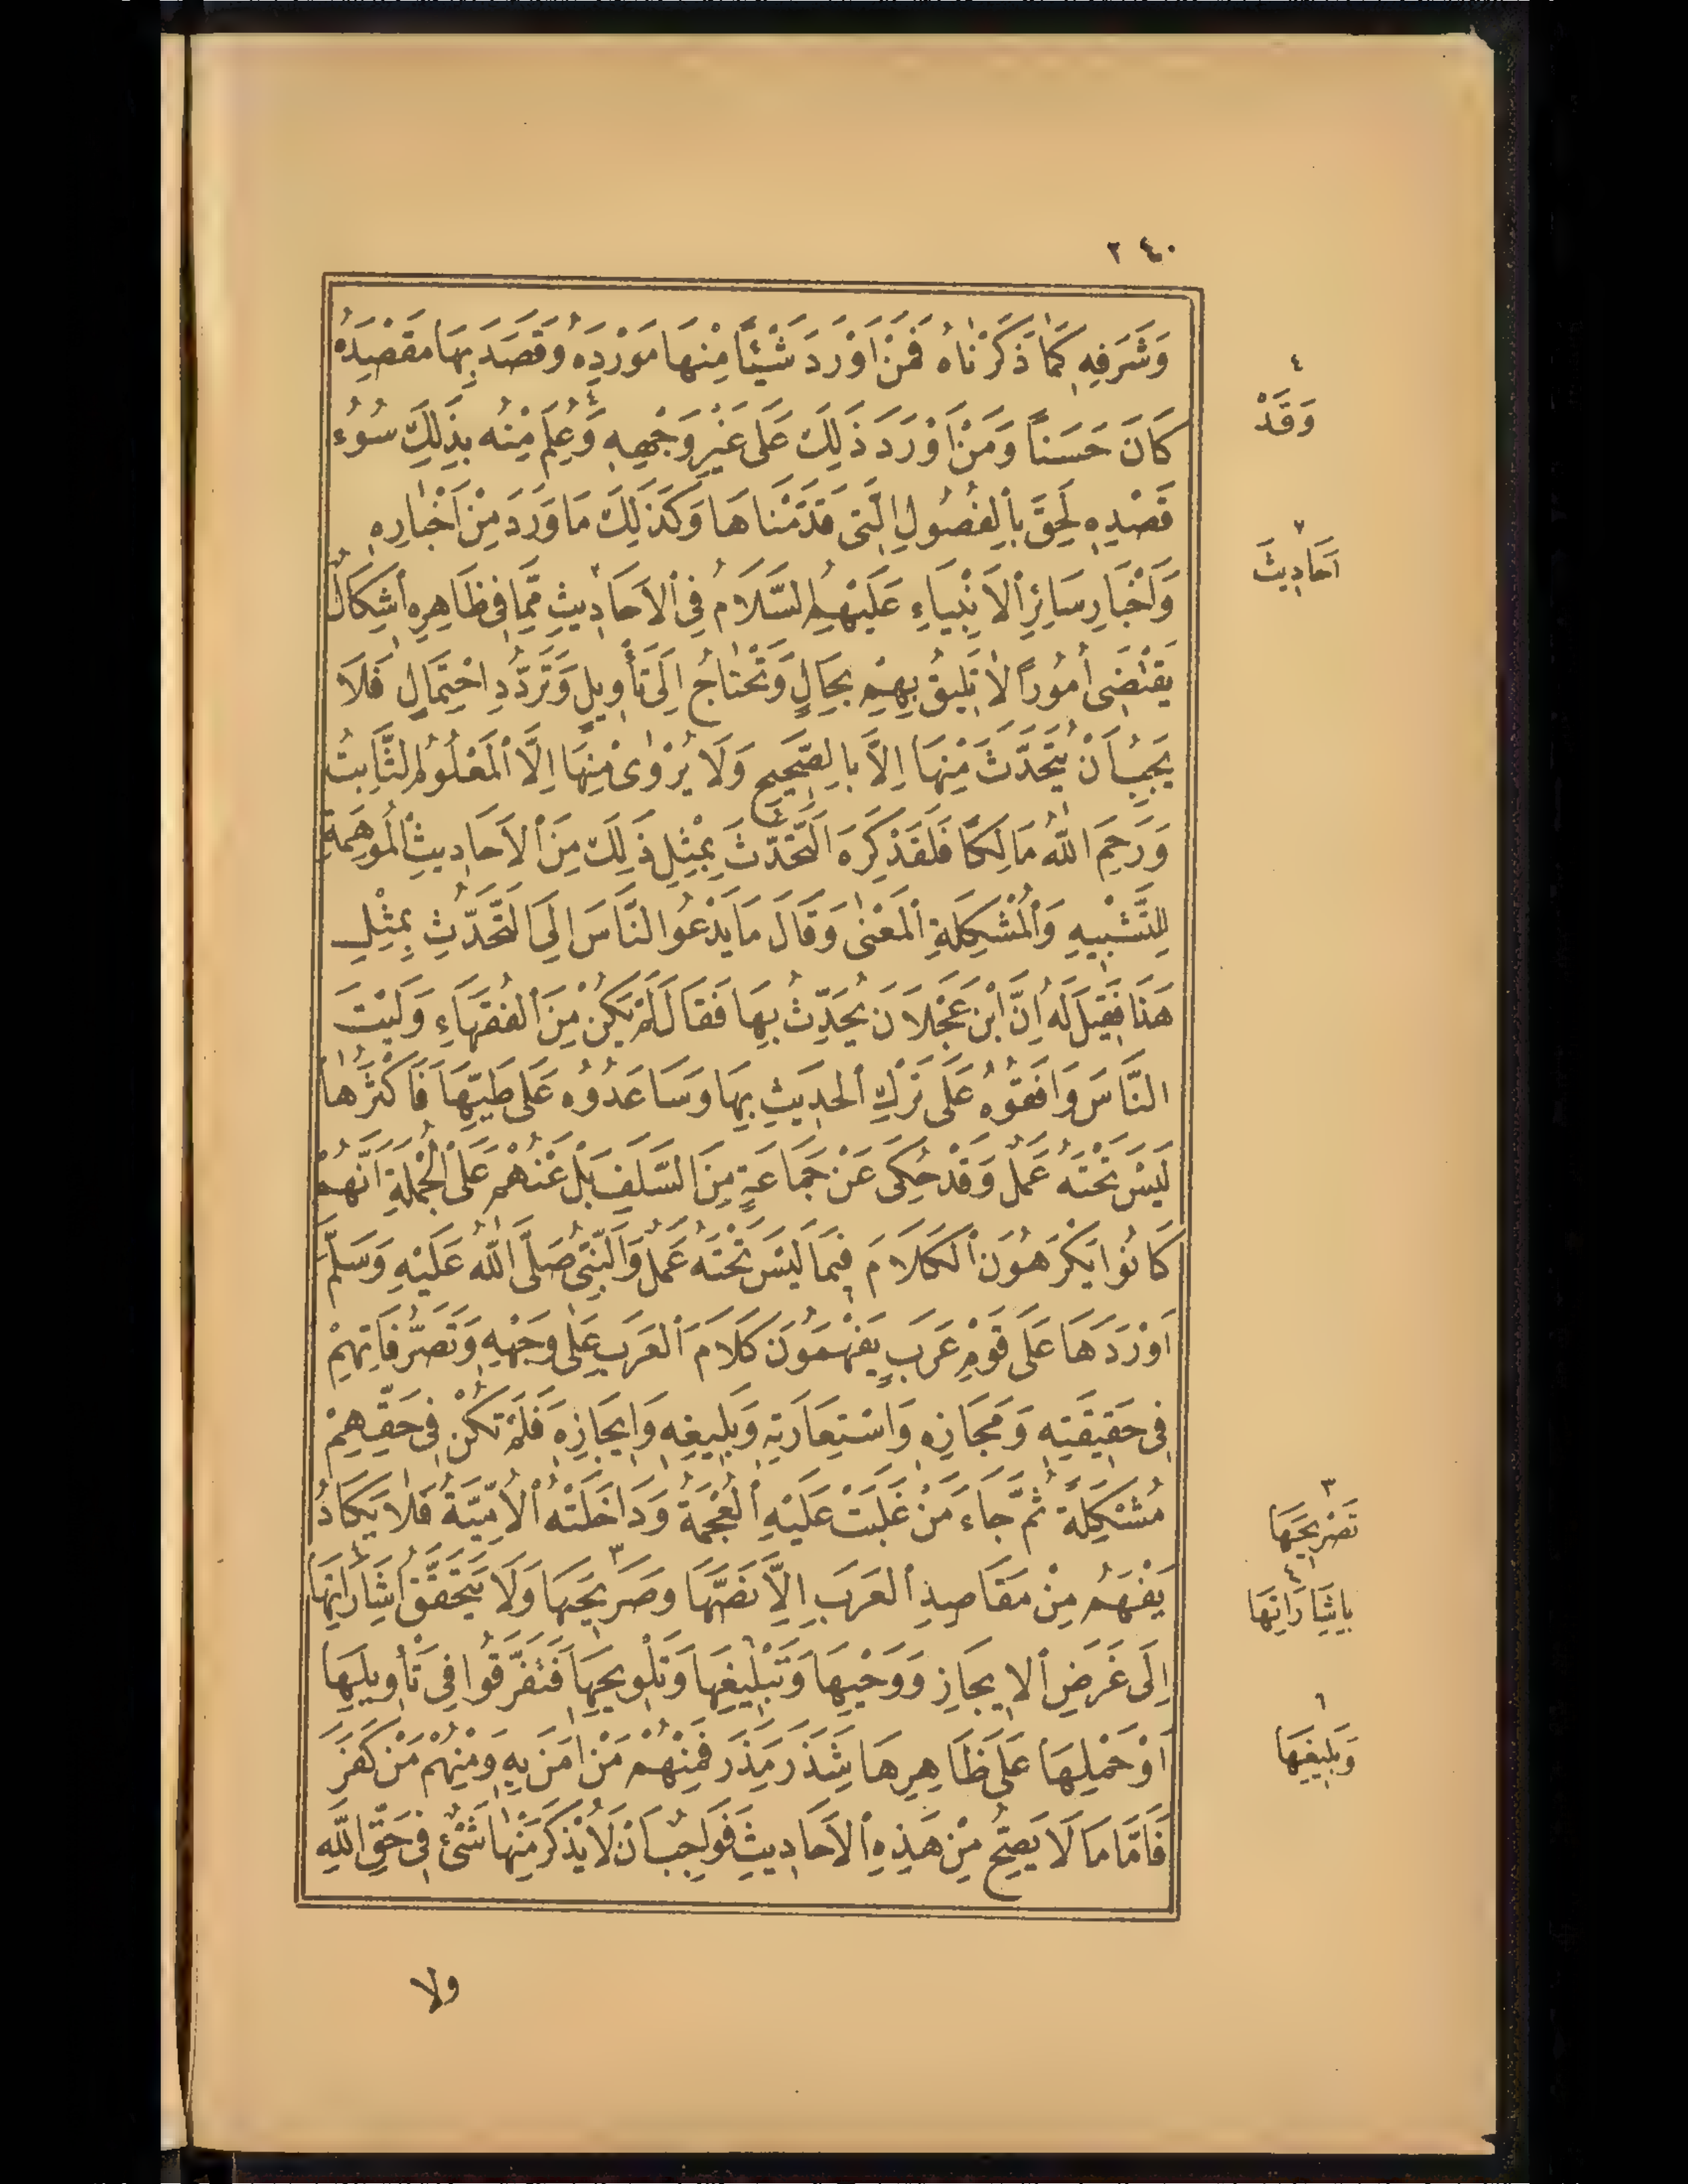 ٢٤٠
وَشَرَفِهِ كَمَا ذَكَرْنَاهُ فَمَنْ اَوْرَدَ شَيْئًا مِنْهَا مَوْرِدَهُ وَقَصَدَ بِهَا مَقْصِدَهُ
كَانَ حَسَنًا وَمَنْ اَوْرَدَ ذَلِكَ عَلَى غَيْرِ وَجْهِهِ ٤ وَعُلِمَ مِنْهُ بِذَلِكَ سُوُءُ
قَصْدِهِ لَحِقَ بِالْفُصُولِ الَّتِى قَدَّمْنَاهَا وَكَذَلِكَ مَا وَرَدَ مِنْ اَخْبَارِهِ
وَاَخْبَارِ سَائِرِ الْاَنْبِيَاءِ عَلَيْهِمُ السَّلَامُ فِى الْاَحَادِيثِ مِمَّا فِى ظَاهِرِهِ اِشْكَالٌ
يَقْتَضِى اُمُورًا لَا تَلِيقُ بِهِمْ بِحَالٍ وَتَحْتَاجُ اِلَى تَأْوِيلٍ وَتَرَدُّدِ احْتِمَالٍ فَلَا
يَجِبُ اَنْ يُتَحَدَّثَ مِنْهَا اِلَّا بِالصَّحِيحِ وَلَا يُرْوَى مِنْهَا اِلَّا الْمَعْلُومُ الثَّابِتُ
وَرَحِمَ اللّٰهُ مَالِكًا فَلَقَدْ كَرِهَ التَّحَدُّثَ بِمِثْلِ ذَلِكَ مِنَ الْاَحَادِيثِ الْمُوهِمَةِ
لِلتَّشْبِيهِ وَالْمُشْكِلَةِ الْمَعْنَى وَقَالَ مَا يَدْعُو النَّاسَ اِلَى التَّحَدُّثِ بِمِثْلِ
هَذَا فَقِيلَ لَهُ اِنَّ ابْنَ عَجْلَانَ يُحَدِّثُ بِهَا فَقَالَ لَمْ يَكُنْ مِنَ الْفُقَهَاءِ وَلَيْتَ
النَّاسَ وَافَقُوهُ عَلَى تَرْكِ الْحَدِيثِ بِهَا وَسَاعَدُوهُ عَلَى طَيِّهَا فَاَكْثَرُهَا
لَيْسَ تَحْتَهُ عَمَلٌ وَقَدْ حُكِىَ عَنْ جَمَاعَةٍ مِنَ السَّلَفِ بَلْ عَنْهُمْ عَلَى الْجُمْلَةِ اَنَّهُمْ
كَانُوا يَكْرَهُونَ الْكَلَامَ فِيمَا لَيْسَ تَحْتَهُ عَمَلٌ وَالنَّبِىُّ صَلَّى اللّٰهُ عَلَيْهِ وَسَلَّمَ
اَوْرَدَهَا عَلَى قَوْمٍ عَرَبٍ يَفْهَمُونَ كَلَامَ الْعَرَبِ عَلَى وَجْهِهِ وَتَصَرُّفَاتِهِمْ
فِى حَقِيقَتِهِ وَمَجَازِهِ وَاسْتِعَارَتِهِ وَبَلِيغِهِ وَاِيجَازِهِ فَلَمْ تَكُنْ فِى حَقِّهِمْ
مُشْكِلَةً ثُمَّ جَاءَ مَنْ غَلَبَتْ عَلَيْهِ الْعُجْمَةُ وَدَاخَلَتْهُ الْاُمِّيَّةُ فَلَا يَكَادُ
يَفْهَمُ مِنْ مَقَاصِدِ الْعَرَبِ اِلَّا نَصَّهَا وَصَرِيحَهَا ٣ وَلَا يَتَحَقَّقُ اِشَارَاتِهَا ٤
اِلَى غَرَضِ الْاِيجَازِ وَوَحْيِهَا وَتَبْلِيغِهَا ٦ وَتَلْوِيحِهَا فَتَفَرَّقُوا فِى تَأْوِيلِهَا
اَوْ حَمْلِهَا عَلَى ظَاهِرِهَا شَذَرَ مَذَرَ فَمِنْهُمْ مَنْ اٰمَنَ بِهِ وَمِنْهُمْ مَنْ كَفَرَ
فَاَمَّا مَا لَا يَصِحُّ مِنْ هَذِهِ الْاَحَادِيثِ فَوَاجِبٌ اَنْ لَا يُذْكَرَ مِنْهَا شَىْءٌ فِى حَقِّ اللّٰهِ
ولا
٤
وَقَدْ
٢
اَحَادِيثَ
٣
تَصْرِيحَهَا
٤
بِاِشَارَاتِهَا
٦
وَبَلِيغِهَا